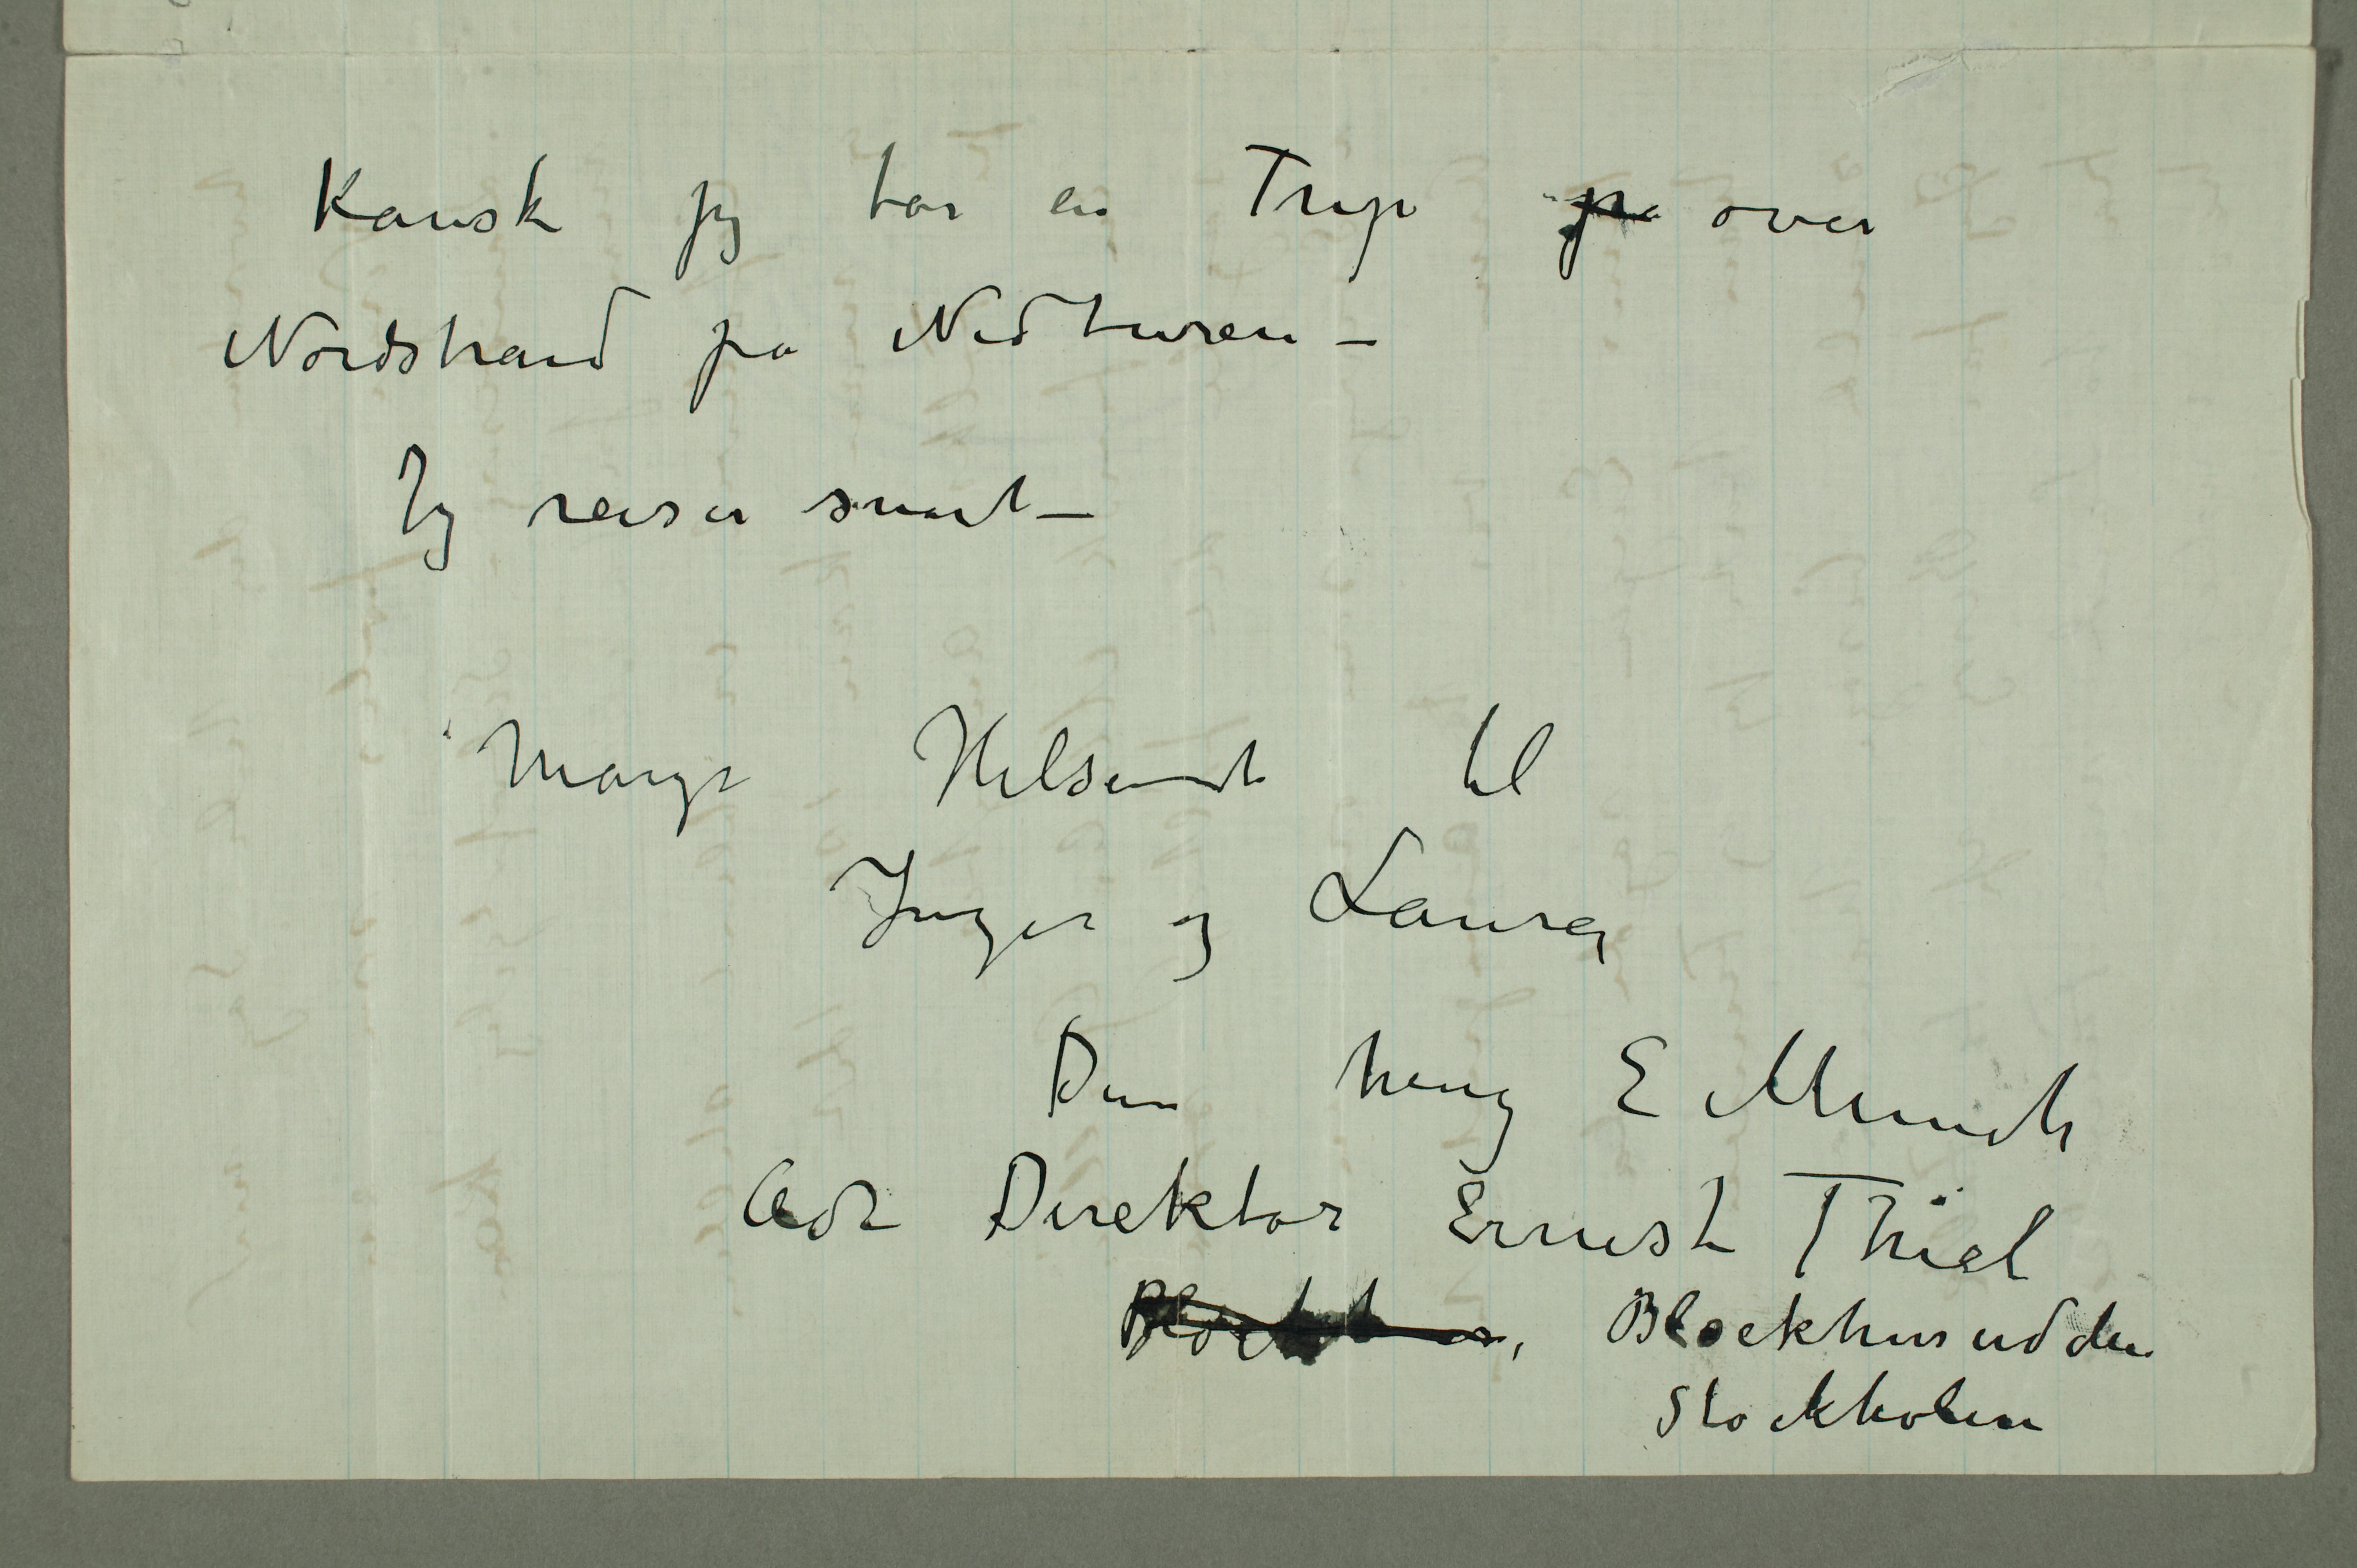 Kanske jeg tar en Trip på over
Nordstrand på Nedturen –
Jeg reiser snart –
Mange Hilsener til
Inger og Laura
Din heng E Munch
Adr Direktør Ernest Thiel
Blockhusudden
Stockholm